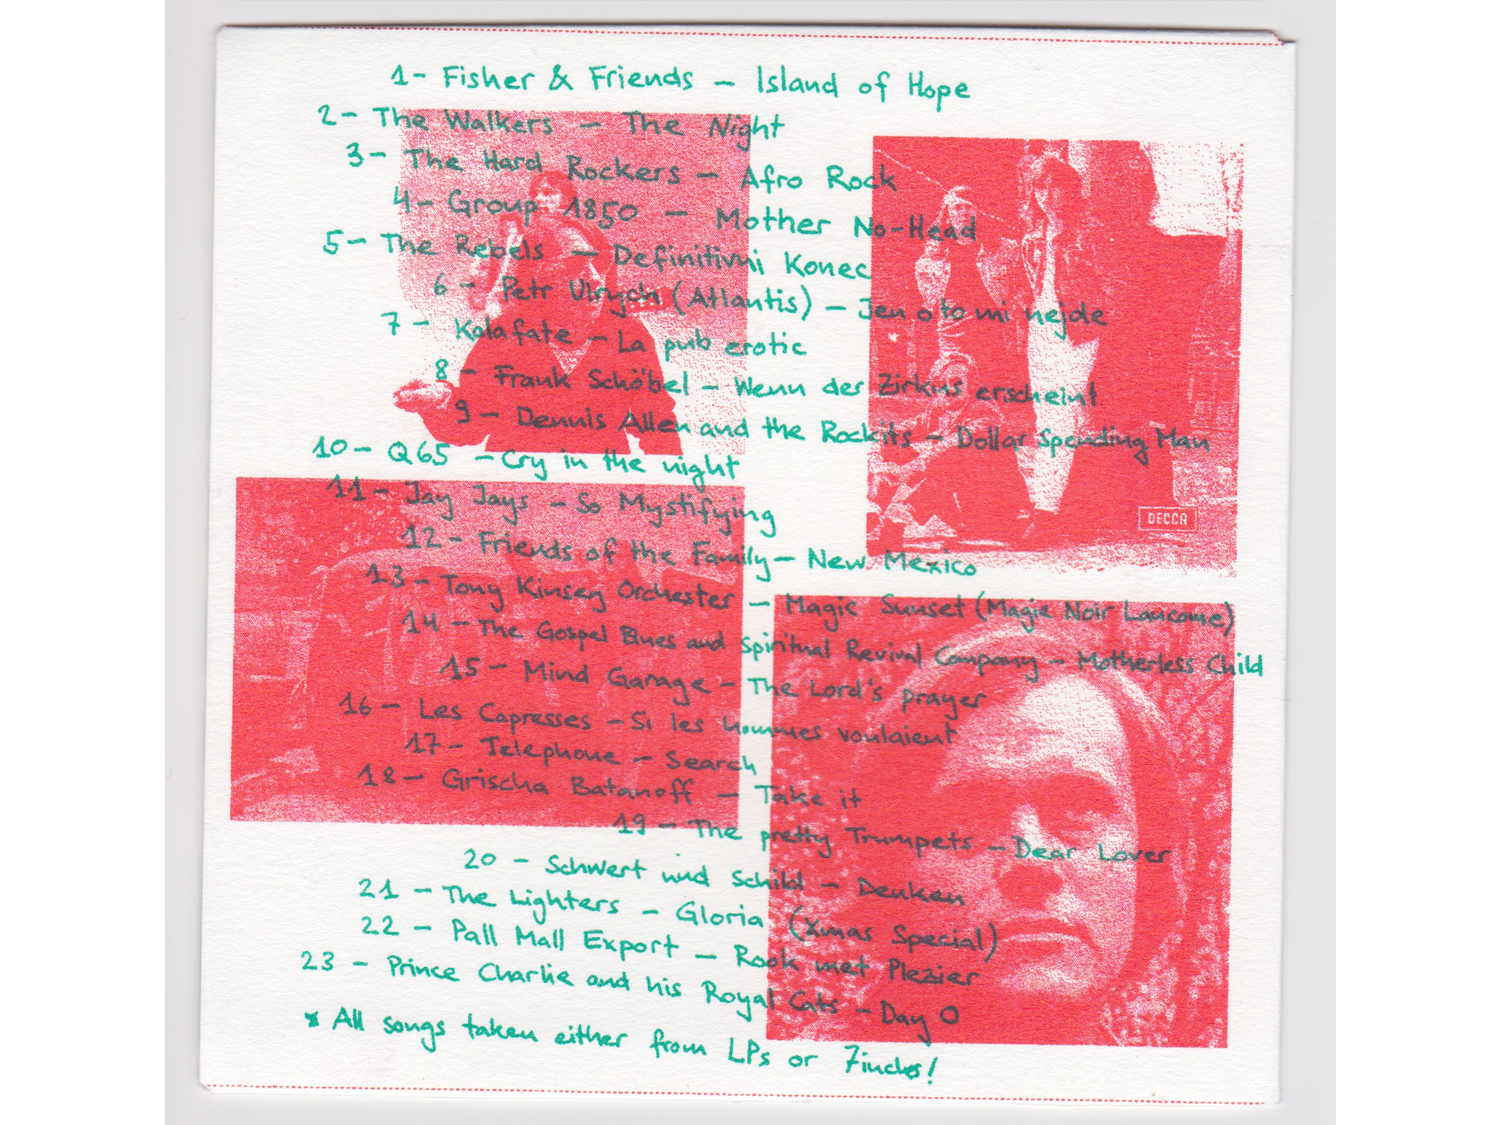 1- Fisher & Friends – Island of Hope
2- The Walkers – The Night
3- The Hard Rockers – Afro Rock
4- Group 1850 – Mother No-Head
5- The Rebels – Definitivni Konec
6- Petr Ulrych (Atlantis) – Jen o to mi nejde
7- Kalafate – La pub erotic
8- Frank Schöbel – Wenn der Zirkus erscheint
9- Dennis Allen and the Rockits – Dollar Spending Man
10- Q65 – Cry in the night
11- Jay Jays – So Mystifying
DECCA
12- Friends of the Family – New Mexico
13- Tony Kinsey Orchester – Magic Sunset (Magie Noir Lancome)
14- The Gospel Blues and Spiritual Revival Company – Motherless Child
15- Mind Garage – The Lord's prayer
16- Les Capresses – Si les hommes voulaient
17- Telephone – Search
18- Grischa Batanoff – Take it
19- The pretty Trumpets – Dear Lover
20- Schwert und Schild – Denken
21- The Lighters – Gloria (Xmas Special)
22- Pall Mall Export – Rook met Plezier
23- Prince Charlie and his Royal Cats – Day O
* All songs taken either from LPs or 7inches!